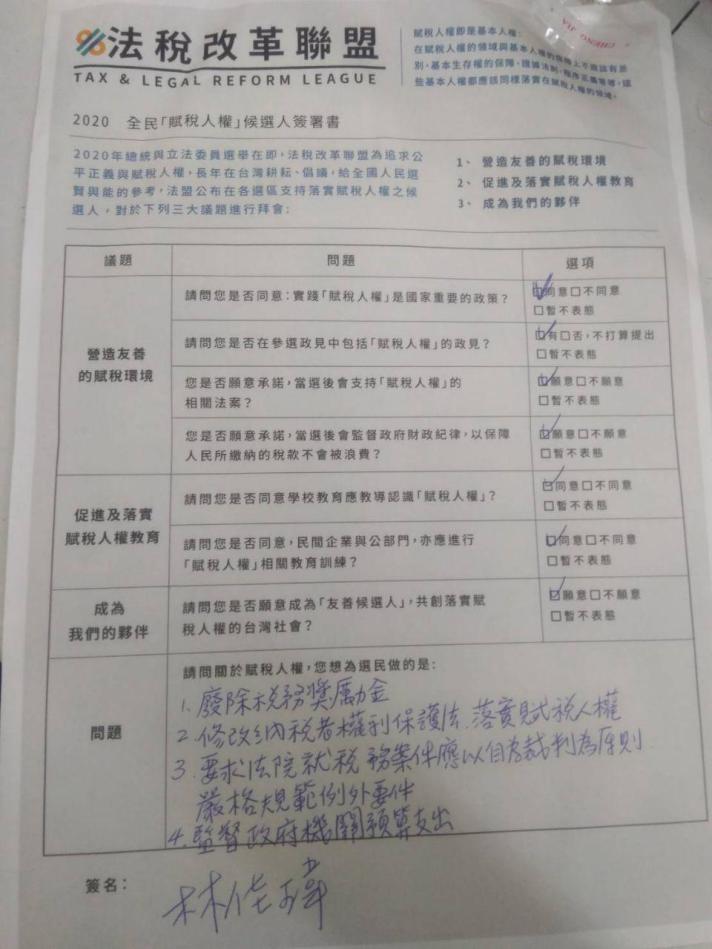 法稅改革聯盟
TAX & LEGAL REFORM LEAGUE
賦稅人權即是基本人權:
在賦稅人權的領域與基本人權的保障上不應該有差
別,基本生存權的保障、證據法則、程序正義等等,這
些基本人權都應該同樣落實在賦稅人權的領域。
2020 全民「賦稅人權」候選人簽署書
2020年總統與立法委員選舉在即,法稅改革聯盟為追求公
平正義與賦稅人權,長年在台灣耕耘、倡議,給全國人民選
賢與能的參考,法盟公布在各選區支持落實賦稅人權之候
選人,對於下列三大議題進行拜會:
1、 營造友善的賦稅環境
2、 促進及落實賦稅人權教育
3、 成為我們的夥伴
議題 問題 選項
營造友善
的賦稅環境
請問您是否同意:實踐「賦稅人權」是國家重要的政策?
☑同意□不同意
□暫不表態
請問您是否在參選政見中包括「賦稅人權」的政見?
☑有□否,不打算提出
□暫不表態
您是否願意承諾,當選後會支持「賦稅人權」的
相關法案?
☑願意□不願意
□暫不表態
您是否願意承諾,當選後會監督政府財政紀律,以保障
人民所繳納的稅款不會被浪費?
☑願意□不願意
□暫不表態
促進及落實
賦稅人權教育
請問您是否同意學校教育應教導認識「賦稅人權」?
☑同意□不同意
□暫不表態
請問您是否同意,民間企業與公部門,亦應進行
「賦稅人權」相關教育訓練?
☑同意□不同意
□暫不表態
成為
我們的夥伴
請問您是否願意成為「友善候選人」,共創落實賦
稅人權的台灣社會?
☑願意□不願意
□暫不表態
問題
請問關於賦稅人權,您想為選民做的是:
1. 廢除稅務獎勵金
2. 修改納稅者權利保護法、落實賦稅人權
3. 要求法院就稅務案件應以自為裁判為原則
嚴格規範例外要件
4. 監督政府機關預算支出
簽名:
林佳瑋